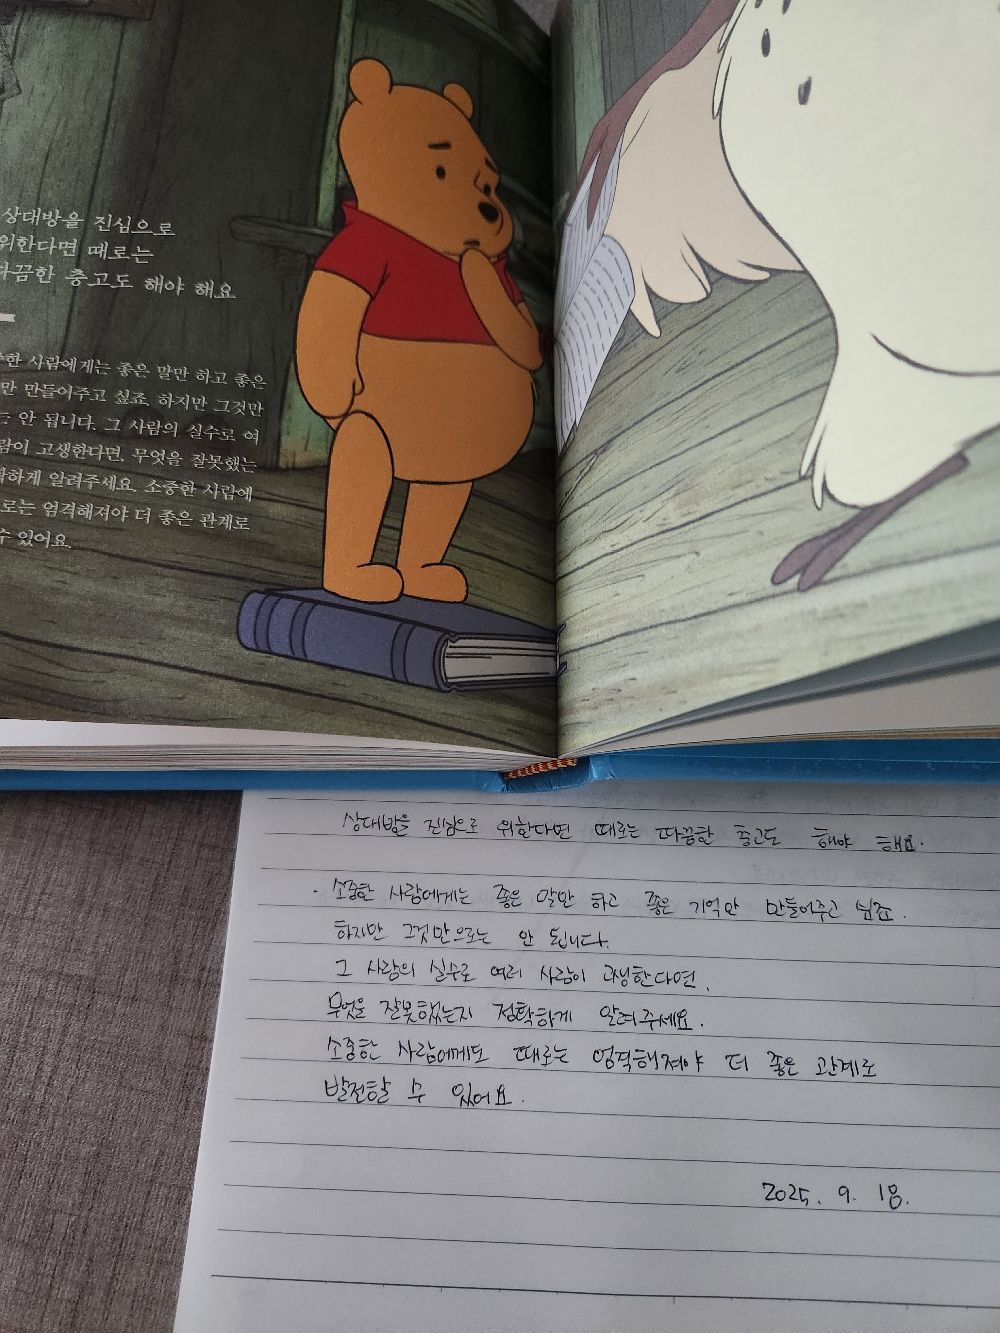 상대방을 진심으로
위한다면 때로는
따끔한 충고도 해야 해요
한 사람에게는 좋은 말만 하고 좋은
만 만들어주고 싶죠. 하지만 그것만
는 안 됩니다. 그 사람의 실수로 여
람이 고생한다면, 무엇을 잘못했는
확하게 알려주세요. 소중한 사람에
로는 엄격해져야 더 좋은 관계로
수 있어요.
상대방을 진심으로 위한다면 때로는 따끔한 충고도 해야 해요.
· 소중한 사람에게는 좋은 말만 하고 좋은 기억만 만들어주고 싶죠.
하지만 그것만으로는 안 됩니다.
그 사람의 실수로 여러 사람이 고생한다면,
무엇을 잘못했는지 정확하게 알려주세요.
소중한 사람에게도 때로는 엄격해져야 더 좋은 관계로
발전할 수 있어요.
2025. 9. 18.